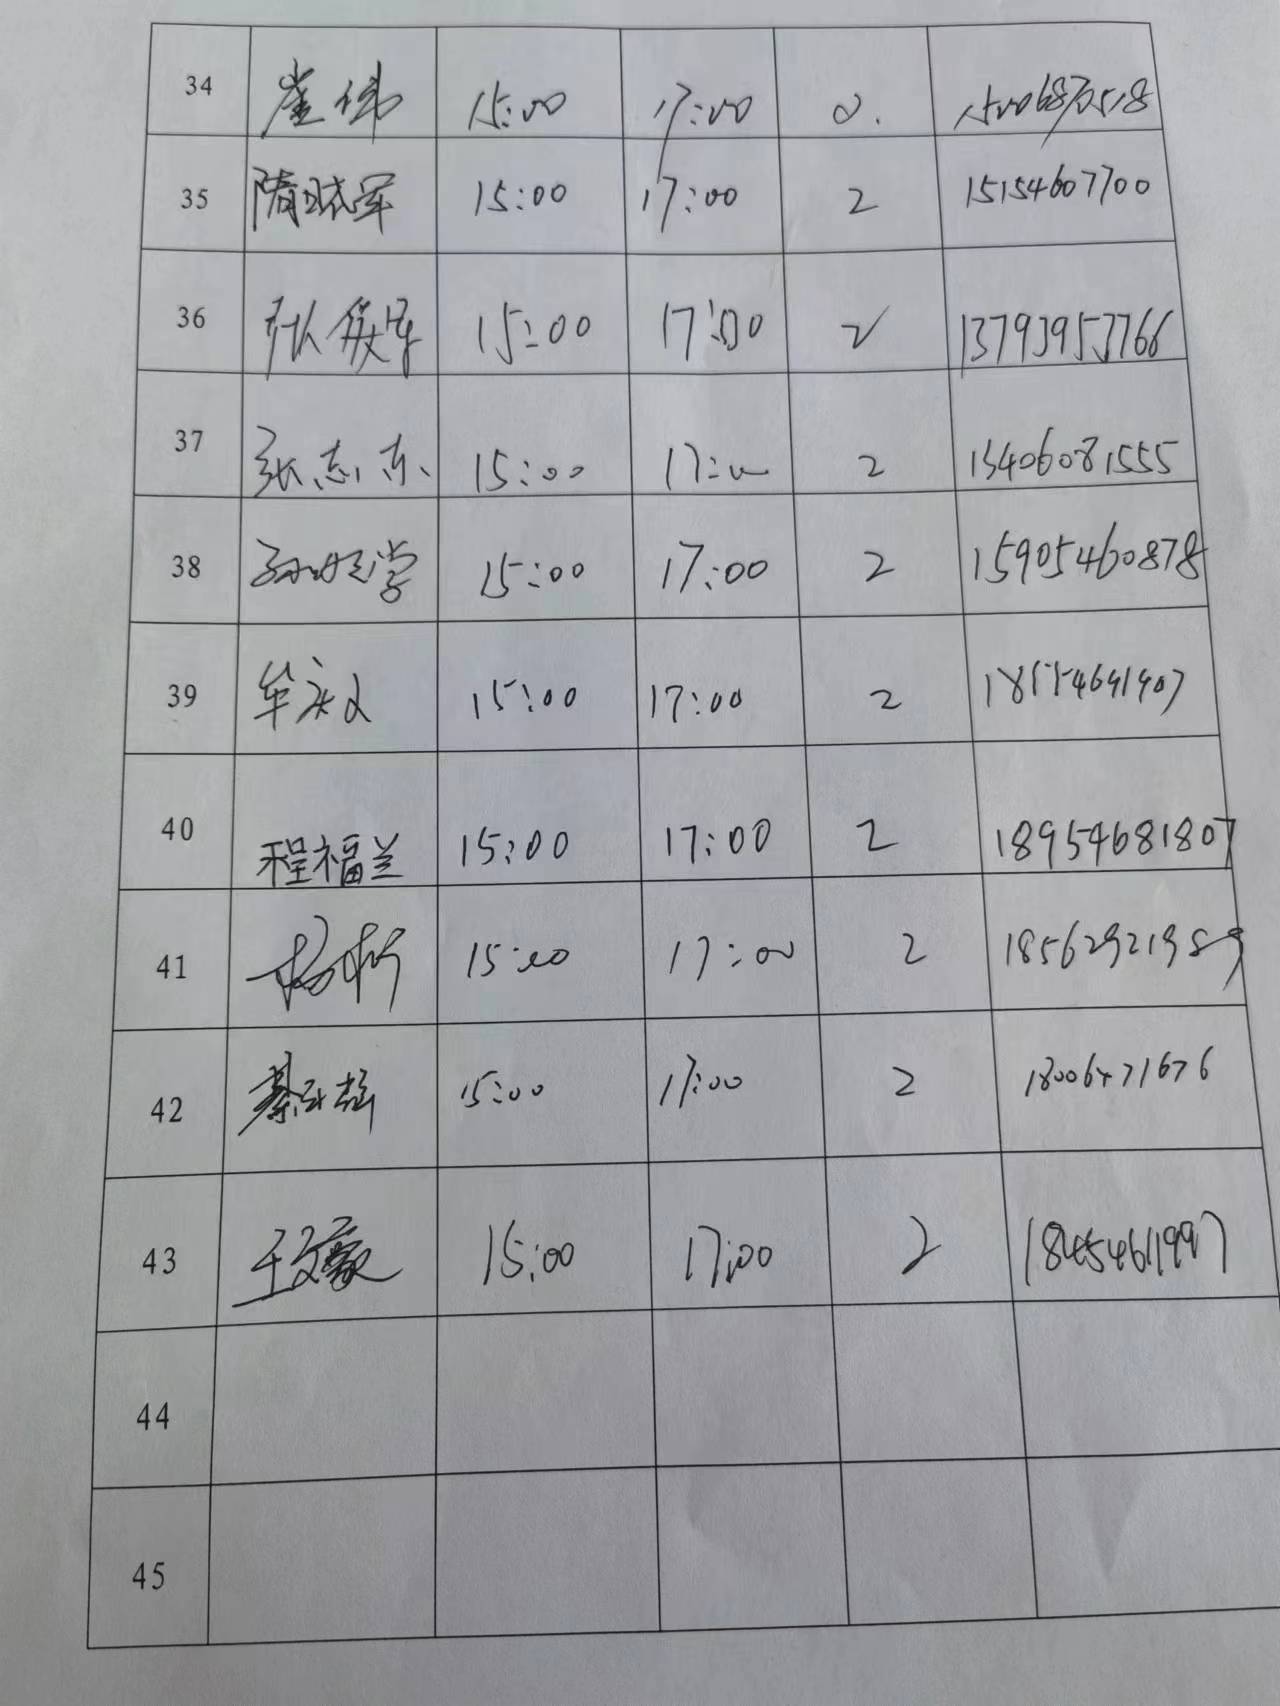 34 崔伟 15:00 17:00 2. 15006870518
35 隋晓军 15:00 17:00 2 15154607700
36 15:00 17:00 2 13793953766
37 张志东 15:00 17:00 2 13406081555
38 15:00 17:00 2 15905460878
39 牟庆文 15:00 17:00 2
40 程福兰 15:00 17:00 2 18954681807
41 杨析 15:00 17:00 2 18562921989
42 綦永雄 15:00 17:00 2 18006471676
43 王文豪 15:00 17:00 2 18454611997
44
45